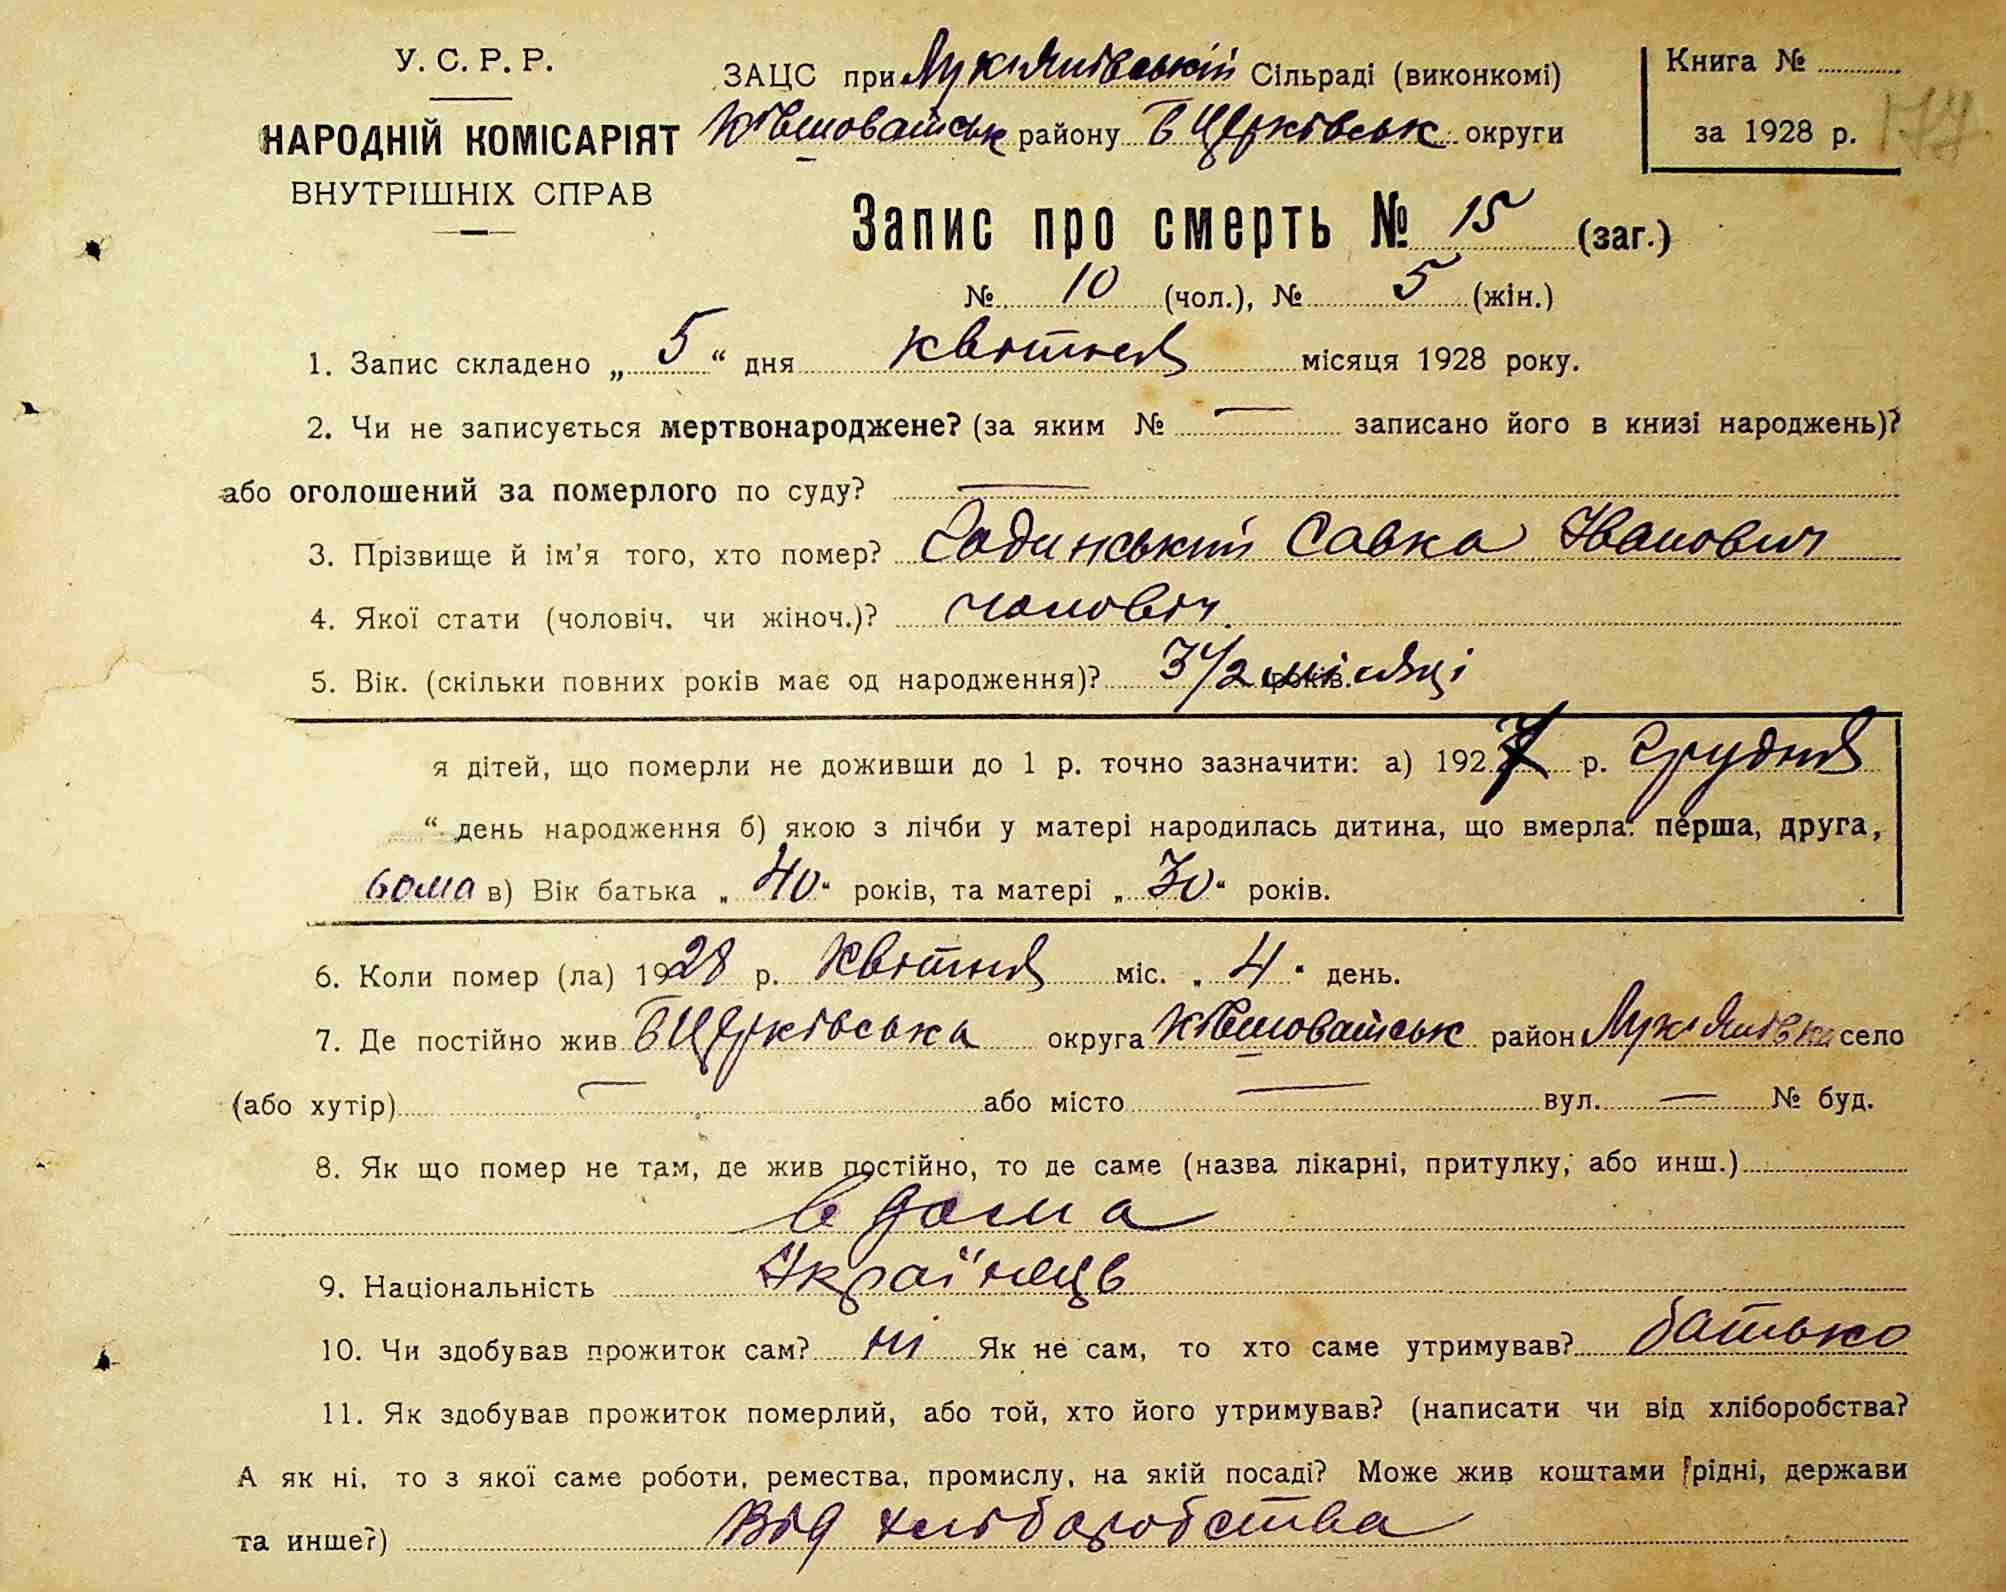 У. С. Р. Р.
НАРОДНІЙ КОМІСАРІЯТ
ВНУТРІШНІХ СПРАВ
ЗАЦС при Лук'янівській Сільраді (виконкомі)
Ківшоватськ району Б Церківськ округи
Книга №
за 1928 р. 177
Запис про смерть № 15 (заг.)
№ 10 (чол.), № 5 (жін.)
1. Запис складено „ 5 “ дня квітня місяця 1928 року.
2. Чи не записується мертвонароджене? (за яким № — записано його в книзі народжень)?
або оголошений за померлого по суду? —
3. Прізвище й ім'я того, хто помер? Савка Іванович
4. Якої стати (чоловіч. чи жіноч.)? чоловіч.
5. Вік. (скільки повних років має од народження)? 3 1/2 місяці років.
я дітей, що померли не доживши до 1 р. точно зазначити: а) 1927 р. Грудня
“ день народження б) якою з лічби у матері народилась дитина, що вмерла: перша, друга,
6ома в) Вік батька „ 40 “ років, та матері „ 30 “ років.
6. Коли помер (ла) 1928 р. Квітня міс. „ 4 “ день.
7. Де постійно жив БЦерківська округа Ківшоватськ район Лук'янівка село
(або хутір) — або місто — вул. — № буд.
8. Як що помер не там, де жив постійно, то де саме (назва лікарні, притулку, або инш.)
в дома
9. Національність Українець
10. Чи здобував прожиток сам? ні Як не сам, то хто саме утримував? батько
11. Як здобував прожиток померлий, або той, хто його утримував? (написати чи від хліборобства?
А як ні, то з якої саме роботи, ремества, промислу, на якій посаді? Може жив коштами рідні, держави
та инше?) Від хліборобства